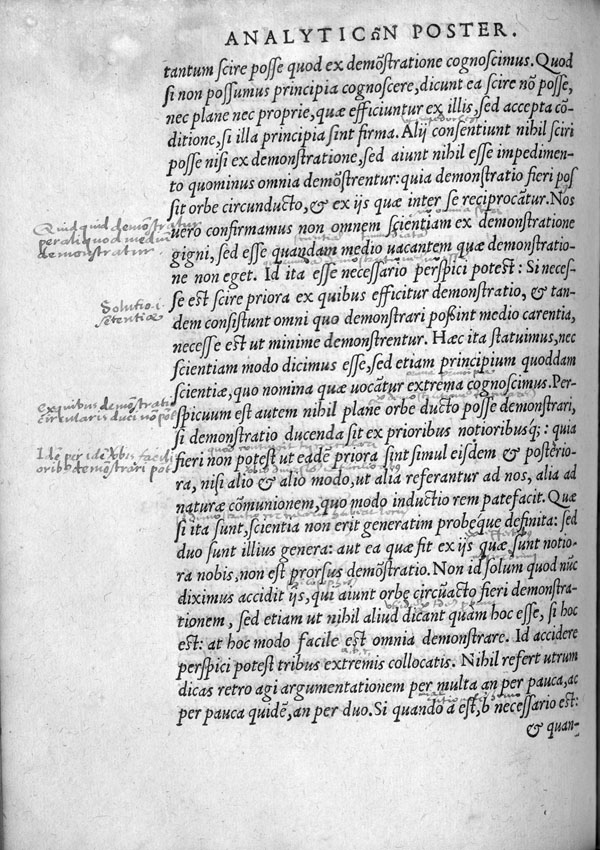 ANALYTICῶN POSTER.
tantum scire posse quod ex demõstratione cognoscimus. Quod
si non possumus principia cognoscere, dicunt ea scire nõ posse,
nec plane nec proprie, quæ efficiuntur ex illis, sed accepta cõ-
ditione, si illa principia sint firma. Alij consentiunt nihil sciri
posse nisi ex demonstratione, sed aiunt nihil esse impedimen-
to quominus omnia demõstrentur: quia demonstratio fieri pos
sit orbe circunducto, & ex ijs quæ inter se reciprocãtur. Nos
Quidquid demõstratur
per aliquod mediũ
demonstratur.
uero confirmamus non omnem scientiam ex demonstratione
gigni, sed esse quandam medio uacantem quæ demonstratio-
ne non eget. Id ita esse necessario perspici potest: Si neces-
se est scire priora ex quibus efficitur demonstratio, & tan-
Solutio
setentiæ
dem consistunt omni quo demonstrari possint medio carentia,
necesse est ut minime demonstrentur. Hæc ita statuimus, nec
scientiam modo dicimus esse, sed etiam principium quoddam
scientiæ, quo nomina quæ uocãtur extrema cognoscimus. Per-
ex quibus demõstratio
circularis duci nõ
spicuum est autem nihil plane orbe ducto posse demonstrari,
si demonstratio ducenda sit ex prioribus notioribusq; : quia
Idẽ per idẽ
demõstrari
fieri non potest ut eadẽ priora sint simul eisdem & posterio-
ra, nisi alio & alio modo, ut alia referantur ad nos, alia ad
naturæ cõmunionem, quo modo inductio rem patefacit. Quæ
si ita sunt, scientia non erit generatim probeque definita: sed
duo sunt illius genera: aut ea quæ fit ex ijs quæ sunt notio-
ra nobis, non est prorsus demõstratio. Non id solum quod nũc
diximus accidit ijs, qui aiunt orbe circũacto fieri demonstra-
tionem, sed etiam ut nihil aliud dicant quam hoc esse, si hoc
est: at hoc modo facile est omnia demonstrare. Id accidere
perspici potest tribus extremis collocatis. Nihil refert utrum
dicas retro agi argumentationem per multa an per pauca, ac
per pauca quidẽ, an per duo. Si quando a est, b necessario est:
& quan-